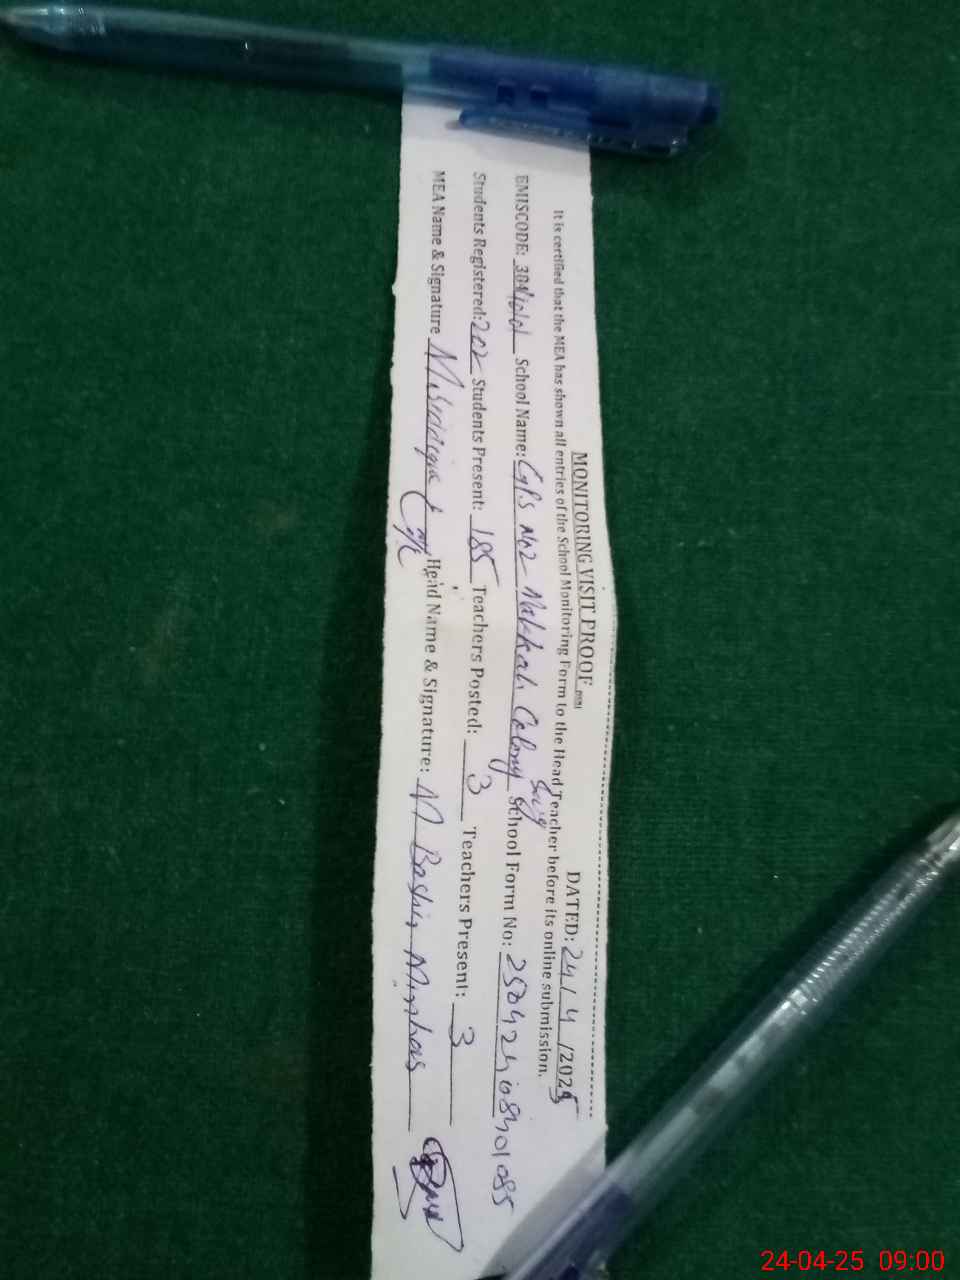 MONITORING VISIT PROOF DATED: 24/4/2025
It is certified that the MEA has shown all entries of the School Monitoring Form to the Head Teacher before its online submission.
EMISCODE: School Name: GPS No2 Makkah Colony School Form No:
Students Registered: 202 Students Present: 185 Teachers Posted: 3 Teachers Present: 3
MEA Name & Signature Head Name & Signature: M Bashir Minhas
24-04-25 09:00